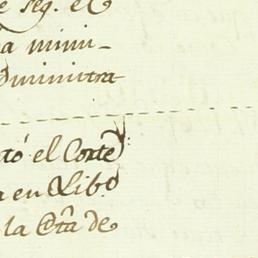 e seg. el
a mini-
dministra
tó el Corte
a en Libo
la Cta de